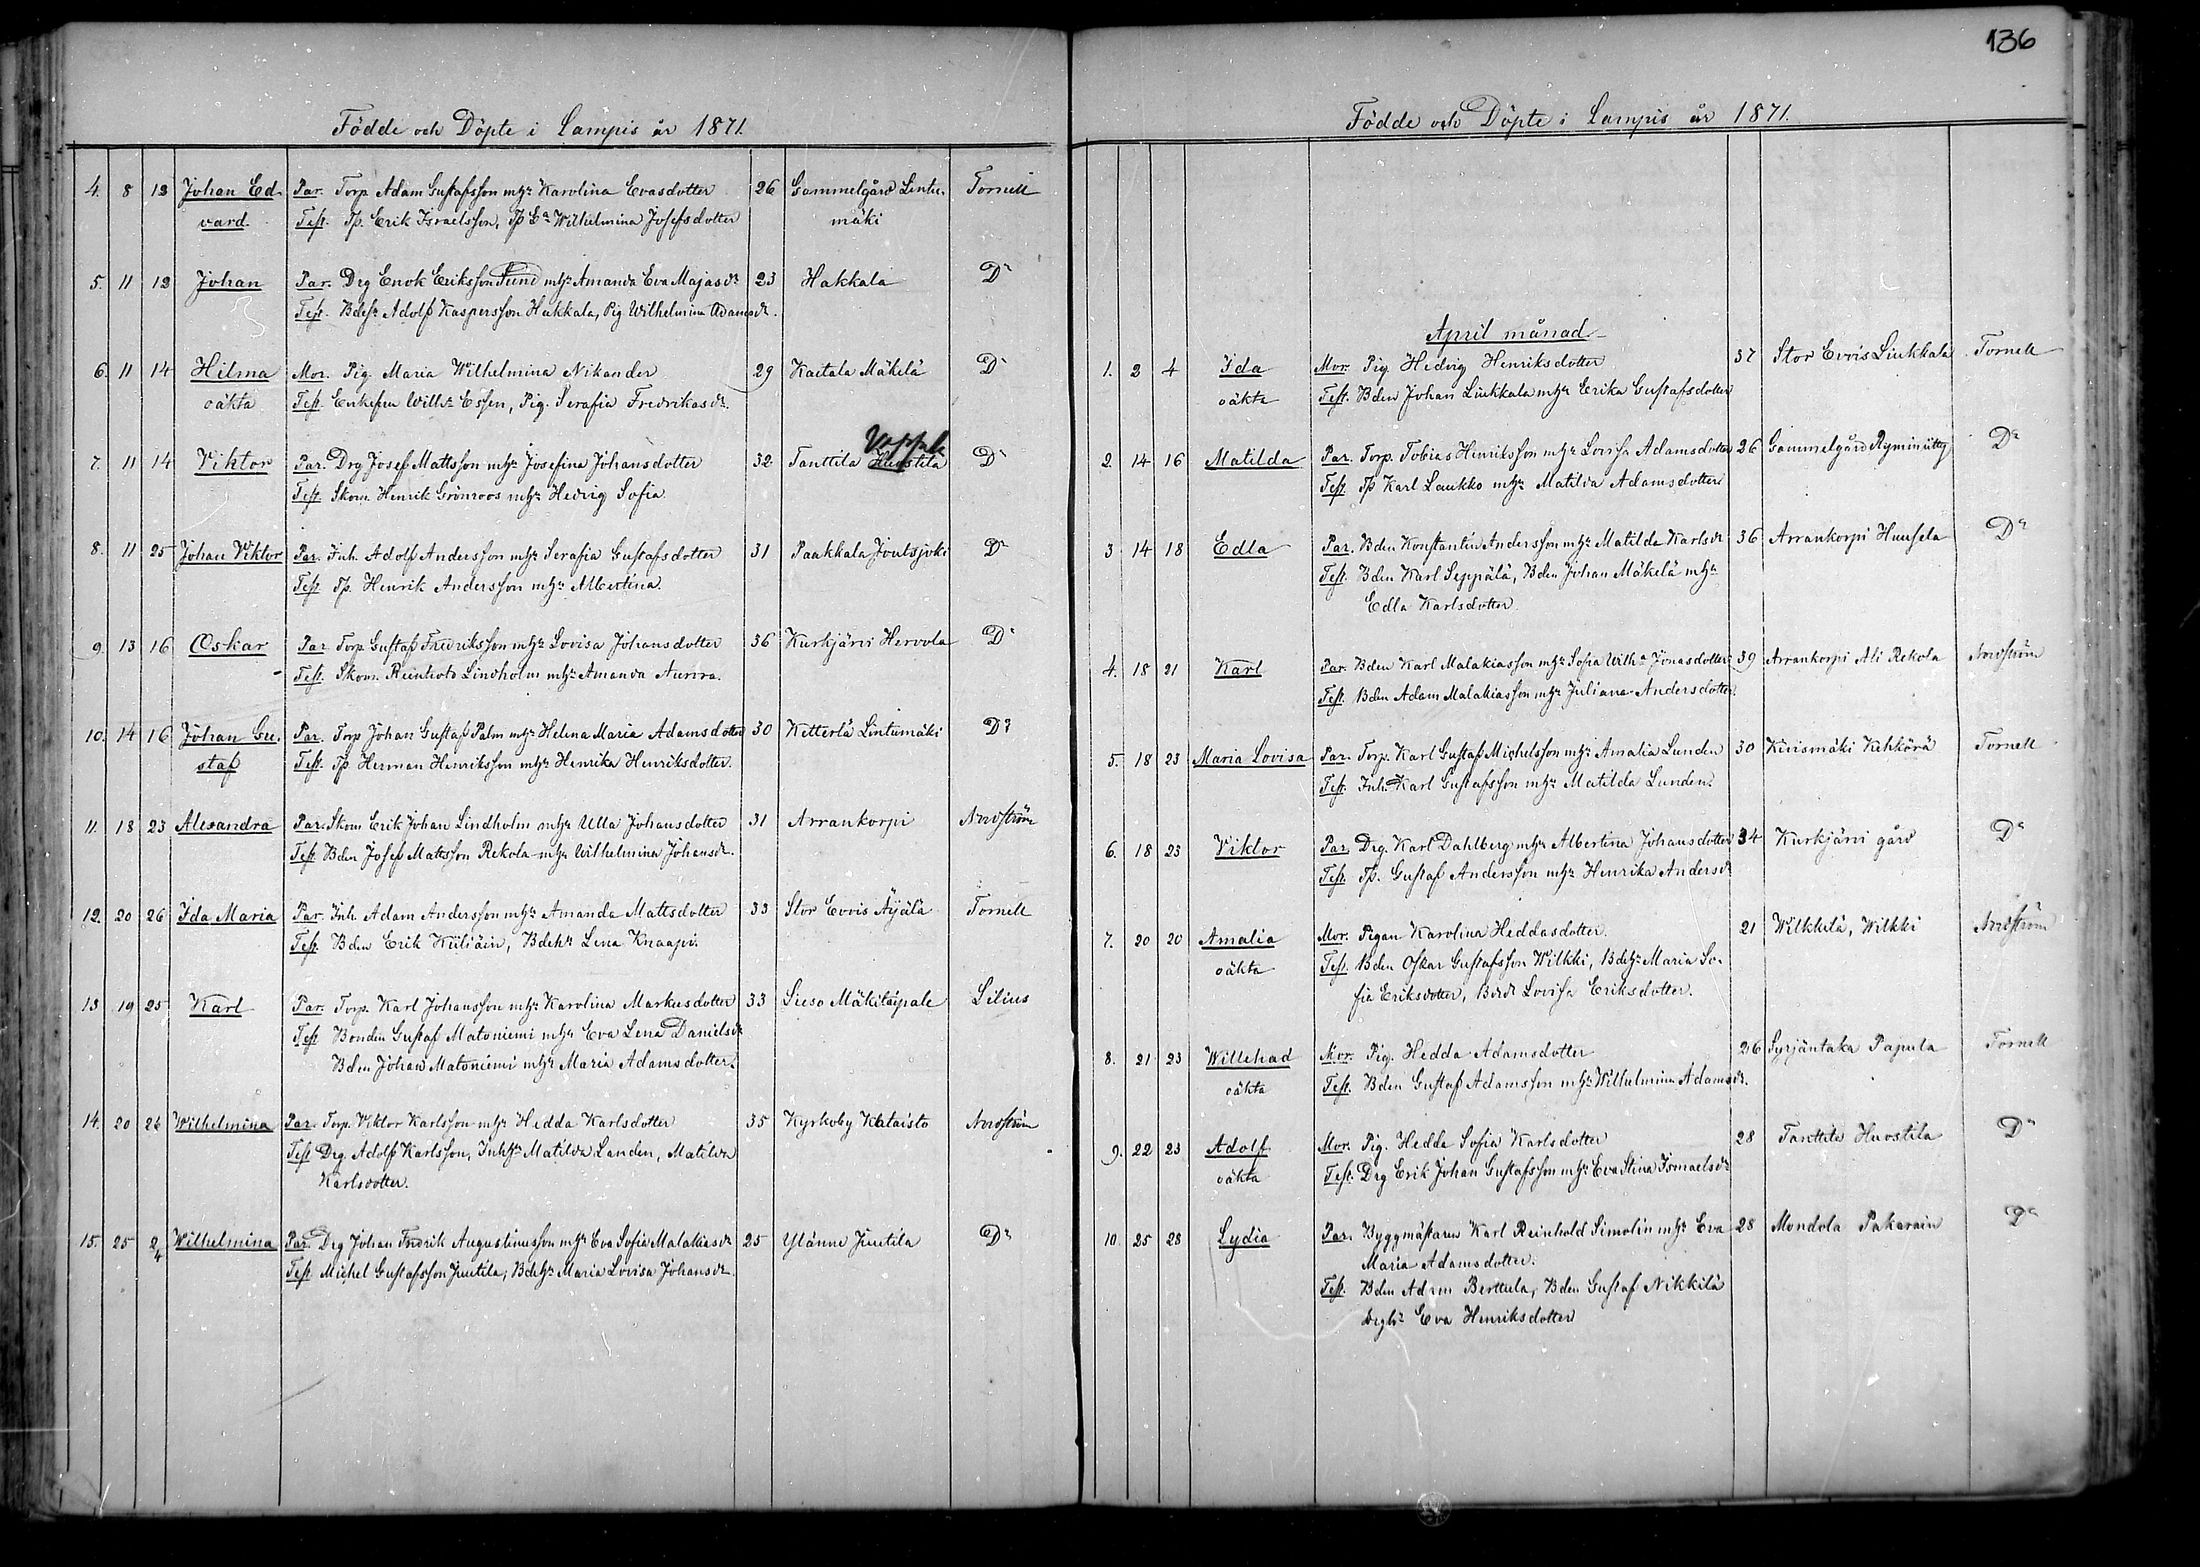 136
Födde och Döpte i Lampis år 1871.
4. 8 13 Johan Ed- Par. Torp. Adam Gustafsson mhu Karolina Evasdotter 26 Gammelgård Lintu- Tornell
vard. Test. Tp. Erik Israelsson, Tp Ea Wilhelmina Josefsdotter mäki
5. 11 12 Johan Par. Drg Enok Eriksson Sund mhu Amanda Eva Majasdr 23 Hakkala Do
Test. Adolf Kaspersson Hakkala, Pig Wilhelmina Adamsdr.
6. 11 14 Hilma Mor. Pig Maria Wilhelmina Nikander 29 Kaitala Mäkelä Do
oäkta Test. Enkefru Essen, Pig. Serafia Fredrikasdr.
7. 11 14 Viktor Par. Drg Josef Mattsson mhu Josefina Johansdotter 32 Tanttila Huostila Do
Test. Skom. Henrik Grönroos mhu Hedvig Sofia
8. 11 25 Johan Viktor Par. Inh. Adolf Andersson mhu Serafia Gustafsdotter 31 Paakkala Joutsjoki Do
Test. Tp. Henrik Andersson mhu Albertina.
9. 13 16 Oskar Par. Torp Gustaf Fredriksson mhu Lovisa Johansdotter 36 Kurkjärvi Hervola Do
Test. Skom. Lindholm mhu Amanda Aurora.
10. 14 16 Johan Gu- Par. Torp Johan Gustaf Palm mhu Helena Maria Adamsdotter 30 Ketterlä Lintumäki Do
staf Test. Tp Herman Henriksson mhu Henrika Henriksdotter.
11. 18 23 Alexandra Par. Skom Erik Johan Lindholm mhu Ulla Johansdotter 31 Arrankorpi Nordström
Test. Bden Josef Mattsson Rekola mhu Wilhelmina Johansdr.
12. 20 26 Ida Maria Par. Inh. Adam Andersson mhu Amanda Mattsdotter 33 Stor Evois Äijälä Tornell
Test. Bden Erik Lena Knaapi.
13 19 25 Karl Par. Torp. Karl Johansson mhu Karolina Markusdotter 33 Suso Mäkitaipale Lilius
Test. Bonden Gustaf Matoniemi mhu Eva Lena Danielsdr
Bden Johan Matoniemi mhu Maria Adamsdotter.
14. 20 26 Wilhelmina Par. Torp. Viktor Karlsson mhu Hedda Karlsdotter 35 Kyrkoby Nordström
Test Drg. Adolf Karlsson, Matilda Landen, Matilda
Karlsdotter.
15. 25 2/4 Wilhelmina Par. Drg Johan Fredrik Augustinusson mhu Eva Sofia Malakiasdr 25 Ylänne Juutila Do
Test. Michel Gustafsson Juutila, Maria Lovisa Johansdr.
Födde och Döpte i Lampis år 1871.
April månad
1. 2 4 Ida Mor. Pig. Hedvig Henriksdotter 37 Stor Evois Liukkala Tornell
oäkta Test. Bden Johan Liukkala mhu Erika Gustafsdotter
2. 14 16 Matilda Par. Torp. Tobias Henriksson mhu Lovisa Adamsdotter 26 Gammelgård Do
Test. Tp Karl Laukko mhu Matilda Adamsdotter
3 14 18 Edla Par. Bden Konstantin Andersson mhu Matilda Karlsdr 36 Arrankorpi Huusela Do
Test. Bden Karl Seppälä, Bden Johan Mäkelä mhu
Edla Karlsdotter
4. 18 21 Karl Par. Bden Karl Malakiasson mhu Sofia Wilha Jonasdotter 39 Arrankorpi Ali Rekola Nordström
Test. Bden Adam Malakiasson mhu Juliana Andersdotter.
5. 18 23 Maria Lovisa Par. Torp. Karl Gustaf Michelsson mhu Amalia Lunden 30 Kirismäki Kehkörä Tornell
Test. Inh. Karl Gustafsson mhu Matilda Lunden.
6. 18 23 Viktor Par. Drg. Karl Dahlberg mhu Albertina Johansdotter 34 Kurkjärvi gård Do
Test. Tp. Gustaf Andersson mhu Henrika Andersdr
7. 20 20 Amalia Mor. Pigan Karolina Heddasdotter. 21 Wilkkilä, Wilkki Nordström
oäkta Test. Bden Oskar Gustafsson Wilkki, Maria So-
fia Eriksdotter, Lovisa Eriksdotter.
8. 21 23 Willehad Mor. Pig. Hedda Adamsdotter 26 Syrjäntaka Papula Tornell
oäkta Test. Bden Gustaf Adamsson mhu Wilhelmina Adamsdr.
9. 22 23 Adolf Mor. Pig. Hedda Sofia Karlsdotter 28 Tanttila Huostila Do
oäkta Test. Drg Erik Johan Gustafsson mhu Eva Stina Ismaelsdr
10. 25 28 Lydia Par. Byggmästaren Karl Reinhold Simolin mhu Eva 28 Mondola Pakarain Do
Maria Adamsdotter.
Test. Bden Adam Berttula, Bden Gustaf Nikkilä
Eva Henriksdotter